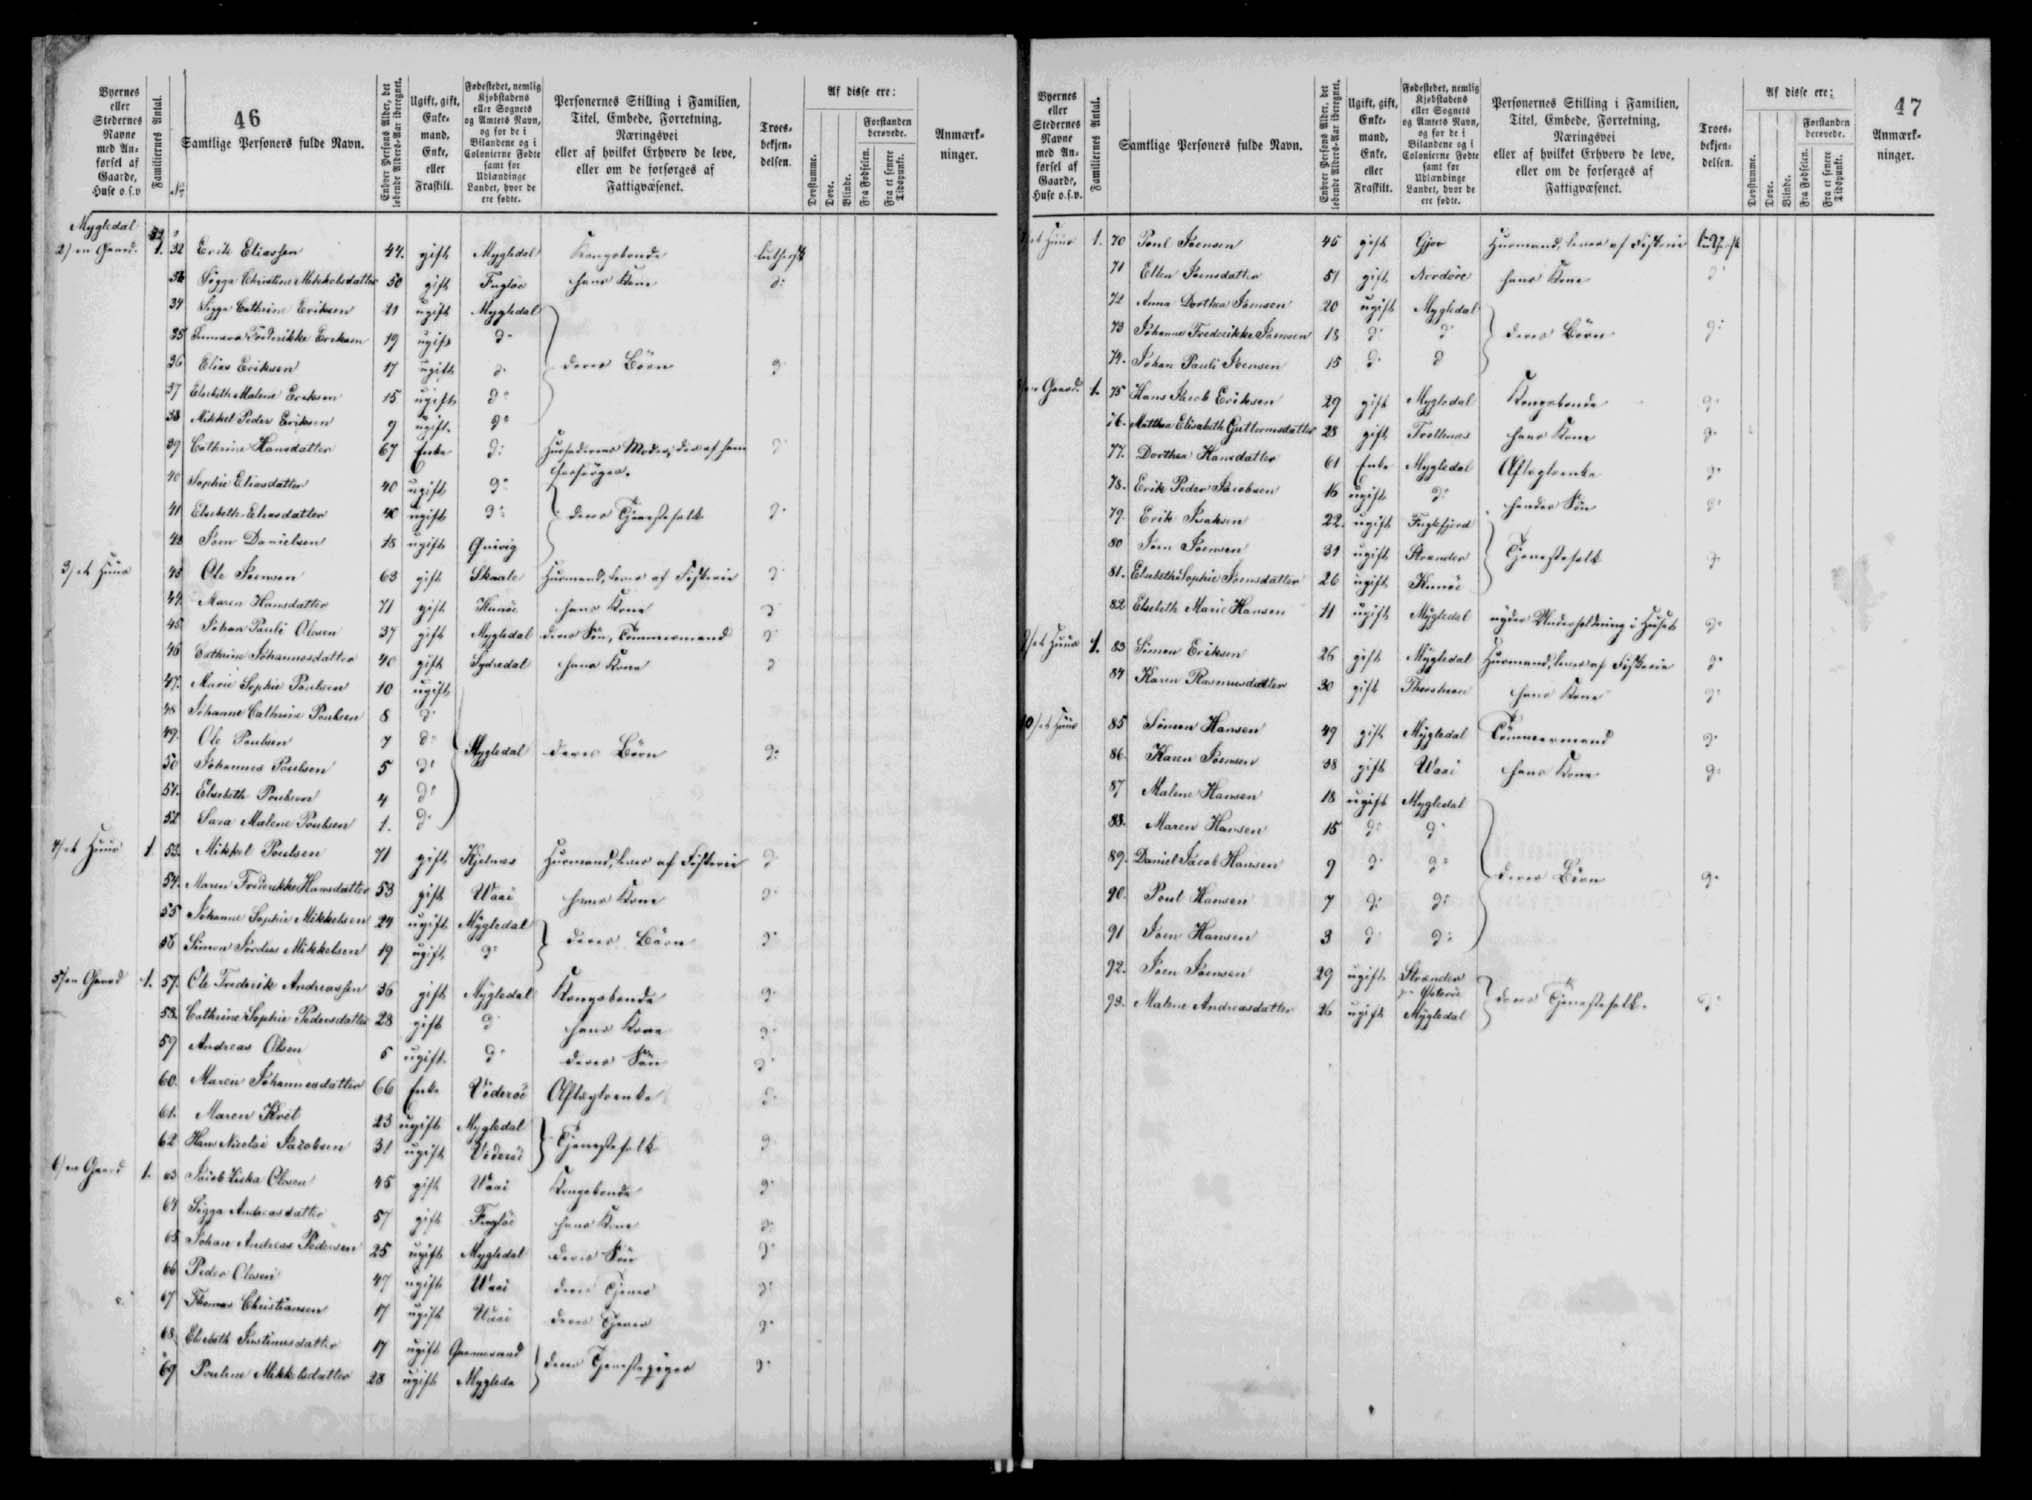 46
Byernes eller Stedernes Navne med Anførsel af Gaarde, Huse o.s.v
Familiernes Antal.
Samtlige Personers fulde Navn.
Enhver Persons Alder, det løbende Alders-Aar iberegnet.
Ugift, gift, Enkemand, Enke, eller Fraskilt.
Fødestedet, nemlig Kjøbstadens eller Sognets og Amtets Navn, og for de i Bilandene og i Colonierne Fødte samt for Udlændinge Landet, hvor de ere fødte.
Personernes Stilling i Familien, Titel, Embede, Forretning, Næringsvei eller af hvilket Erhverv de leve, eller om de forsørges af Fattigvæsenet.
Troesbekjendelsen.
Af disse ere:
Døvstumme.
Døve.
Blinde.
Forstanden berøvede.
Fra Fødselen.
Fra et senere Tidspunkt.
Anmærkninger.
Mygledal
2) en Gaard. 1. 32 Erik Eliassen 44. gift Mygledal Kongsbonde luthersk
Sigga Christine Mikkelsdatter 50 gift Fuglöe hans Kone do
34 Sigga Cathrine Eriksen 21 ugift Mygledal
35 Sunneva Frederikke Eriksen 19 ugift do
36 Elias Eriksen 17 ugift do deres Börn do
37 Elsebeth Malene Eriksen 15 ugift do
38 Mikkel Peder Eriksen 9 ugift do
39 Cathrine Hansdatter 67 Enke do Husfaderens Moder, der af ham forsörges. do
40 Sophie Eliasdatter 40 ugift do
41 Elsebeth Eliasdatter 40 ugift do deres Tjenestefolk do
42 Joen Danielsen 18 ugift Qvivig
3) et Huus 43 Ole Joensen 63 gift Skaale Huusmand, lever af Fiskerie do
44. Maren Hansdatter 71 gift Kunöe hans Kone do
45 Johan Pauli Olesen 37 gift Mygledal deres Sön, Tömmermand do
46 Cathrine Johannesdatter 40 gift Sydredal hans Kone do
47. Marie Sophie Poulsen 10 ugift
48 Johanne Cathrine Poulsen 8 do
49. Ole Poulsen 7 do Mygledal deres Börn do
50 Johannes Poulsen 5 do
51. Elsebeth Poulsen 4 do
52 Sara Malene Poulsen 1. do
4) et Huus 1 53. Mikkel Poulsen 71 gift Kjelnæs Huusmand, lever af Fiskerie do
54. Maren Frederikke Hansdatter 53 gift Waai hans Kone do
55 Johanne Sophie Mikkelsen 24 ugift Mygledal
56 Simon Mikkelsen 19 ugift do deres Börn do
5) en Gaard 1. 57. Ole Frederik Andreassen 36 gift Mygledal Kongsbonde do
58. Cathrine Sophie Pedersdatter 28 gift do hans Kone do
59 Andreas Olsen 5 ugift do deres Sön do
60. Maren Johannesdatter 66 Enke Videröe Aftægtsenke do
61. Maren 23 ugift Mygledal
62 Hans Nicolai Jacobsen 31 ugift Videröe Tjenestefolk do
6) en Gaard 1. 63 Jacob Olesen 45 gift Waai Kongsbonde do
64 Sigga Andreasdatter 57 gift Fuglöe hans Kone do
65 Johan Andreas Pedersen 25 ugift Mygledal deres Sön do
66 Peder Olesen 47 ugift Waai deres Tjener do
67 Thomas Christiansen 17 ugift Waai deres Tjener do
68. Elsebeth Justinusdatter 17 ugift
69 Pouline Mikkelsdatter 28 ugift Mygleda deres Tjenestepiger do
47
Byernes eller Stedernes Navne med Anførsel af Gaarde, Huse o.s.v.
Familiernes Antal.
Samtlige Personers fulde Navn.
Enhver Persons Alder, det løbende Alders-Aar iberegnet.
Ugift, gift, Enkemand, Enke, eller Fraskilt.
Fødestedet, nemlig Kjøbstadens eller Sognets og Amtets Navn, og for de i Bilandene og i Colonierne Fødte samt for Udlændinge Landet, hvor de ere fødte.
Personernes Stilling i Familien, Titel, Embede, Forretning, Næringsvei eller af hvilket Erhverv de leve, eller om de forsørges af Fattigvæsenet.
Troesbekjendelsen.
Af disse ere:
Døvstumme.
Døve.
Blinde.
Forstanden berøvede.
Fra Fødselen.
Fra et senere Tidspunkt.
Anmærkninger.
et Huus 1. 70 Poul Joensen 45 gift Gjov Huusmand, lever af Fiskerie Luthersk
71 Ellen Joensdatter 51 gift Nordöre hans Kone do
72 Anna Dorthea Joensen 20 ugift Mygledal
73 Johanne Frederikke Joensen 18 do do deres Börn do
74. Johan Pauli Joensen 15 do do
en Gaard. 1. 75 Hans Jacob Eriksen 29 gift Mygledal Kongsbonde do
76. Matthea Elisabeth Guttormsdatter 28 gift Trollenæs hans Kone do
77. Dorthea Hansdatter 61 Enke Mygledal Aftægtsenke do
78. Erik Peder Jacobsen 16 ugift do hendes Sön do
79. Erik Isaksen 22. ugift Fuglefjord
80 Joen Joensen 31 ugift Strænder Tjenestefolk do
81. Elsebeth Sophie Joensdatter 26 ugift Kunöe
82 Elsebeth Marie Hansen 11 ugift Mygledal nyder Underholdning i Huset do
9) et Huus 1. 83 Simon Eriksen 26 gift Mygledal Huusmand, lever af Fiskerie do
84 Karen Rasmusdatter 30 gift Thorshavn hans Kone do
10) et Huus 85 Simon Hansen 49 gift Mygledal Tömmermand do
86. Karen Joensen 38 gift Waai hans Kone do
87 Malene Hansen 18 ugift Mygledal
88. Maren Hansen 15 do do
89. Daniel Jacob Hansen 9 do do deres Börn do
90. Poul Hansen 7 do do
91 Joen Hansen 3 do do
92. Joen Joensen 29 ugift Strænder paa Österöe
93. Malene Andreasdatter 26 ugift Mygledal deres Tjenestefolk. do